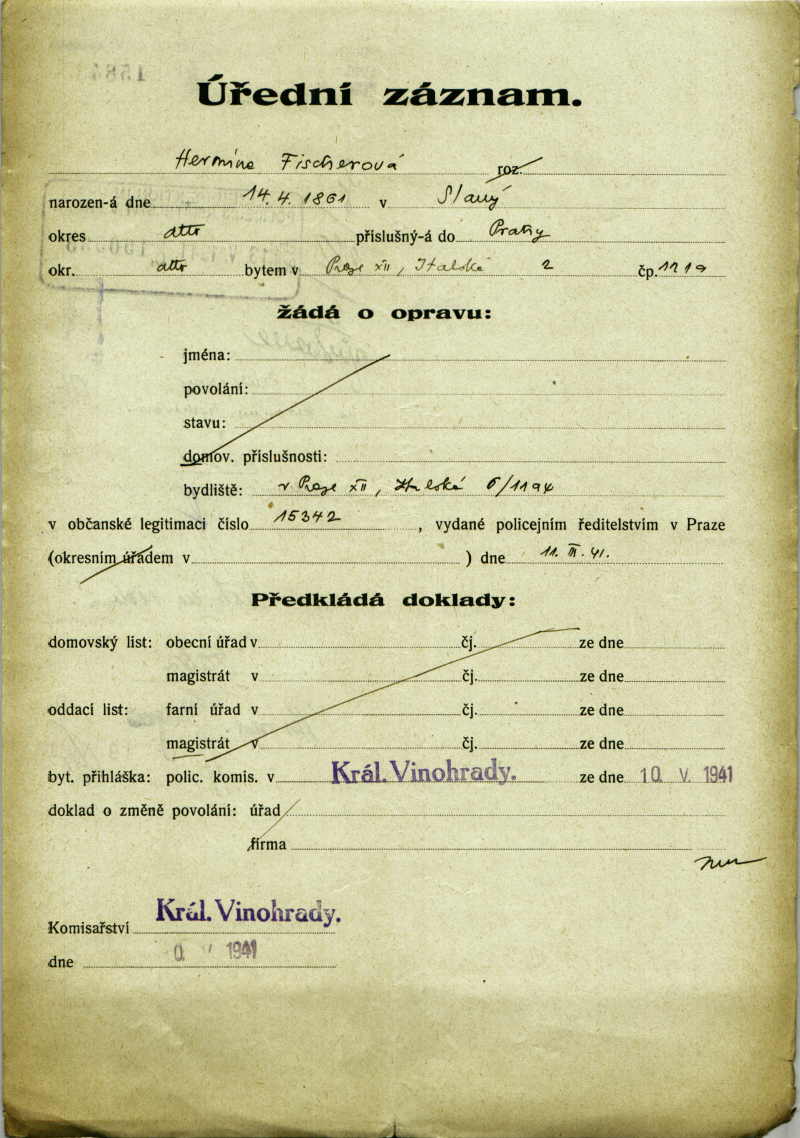 Úřední záznam.
Hermine Fischerová roz.
narozen-á dne 14. 4. 1861 v Slaný
okres příslušný-á do Prahy
okr. bytem v Praze XII, Italská 2 čp. 1219
žádá o opravu:
jména:
povolání:
stavu:
domov. příslušnosti:
bydliště: v Praze XII, Italská 6/1194
v občanské legitimaci číslo 15342, vydané policejním ředitelstvím v Praze
(okresním úřadem v ) dne 11. III. 41.
Předkládá doklady:
domovský list: obecní úřad v čj. ze dne
magistrát v čj. ze dne
oddací list: farní úřad v čj. ze dne
magistrát v čj. ze dne
byt. přihláška: polic. komis. v Král. Vinohrady. ze dne 10. V. 1941
doklad o změně povolání: úřad
firma
Komisařství Král. Vinohrady.
dne 1941